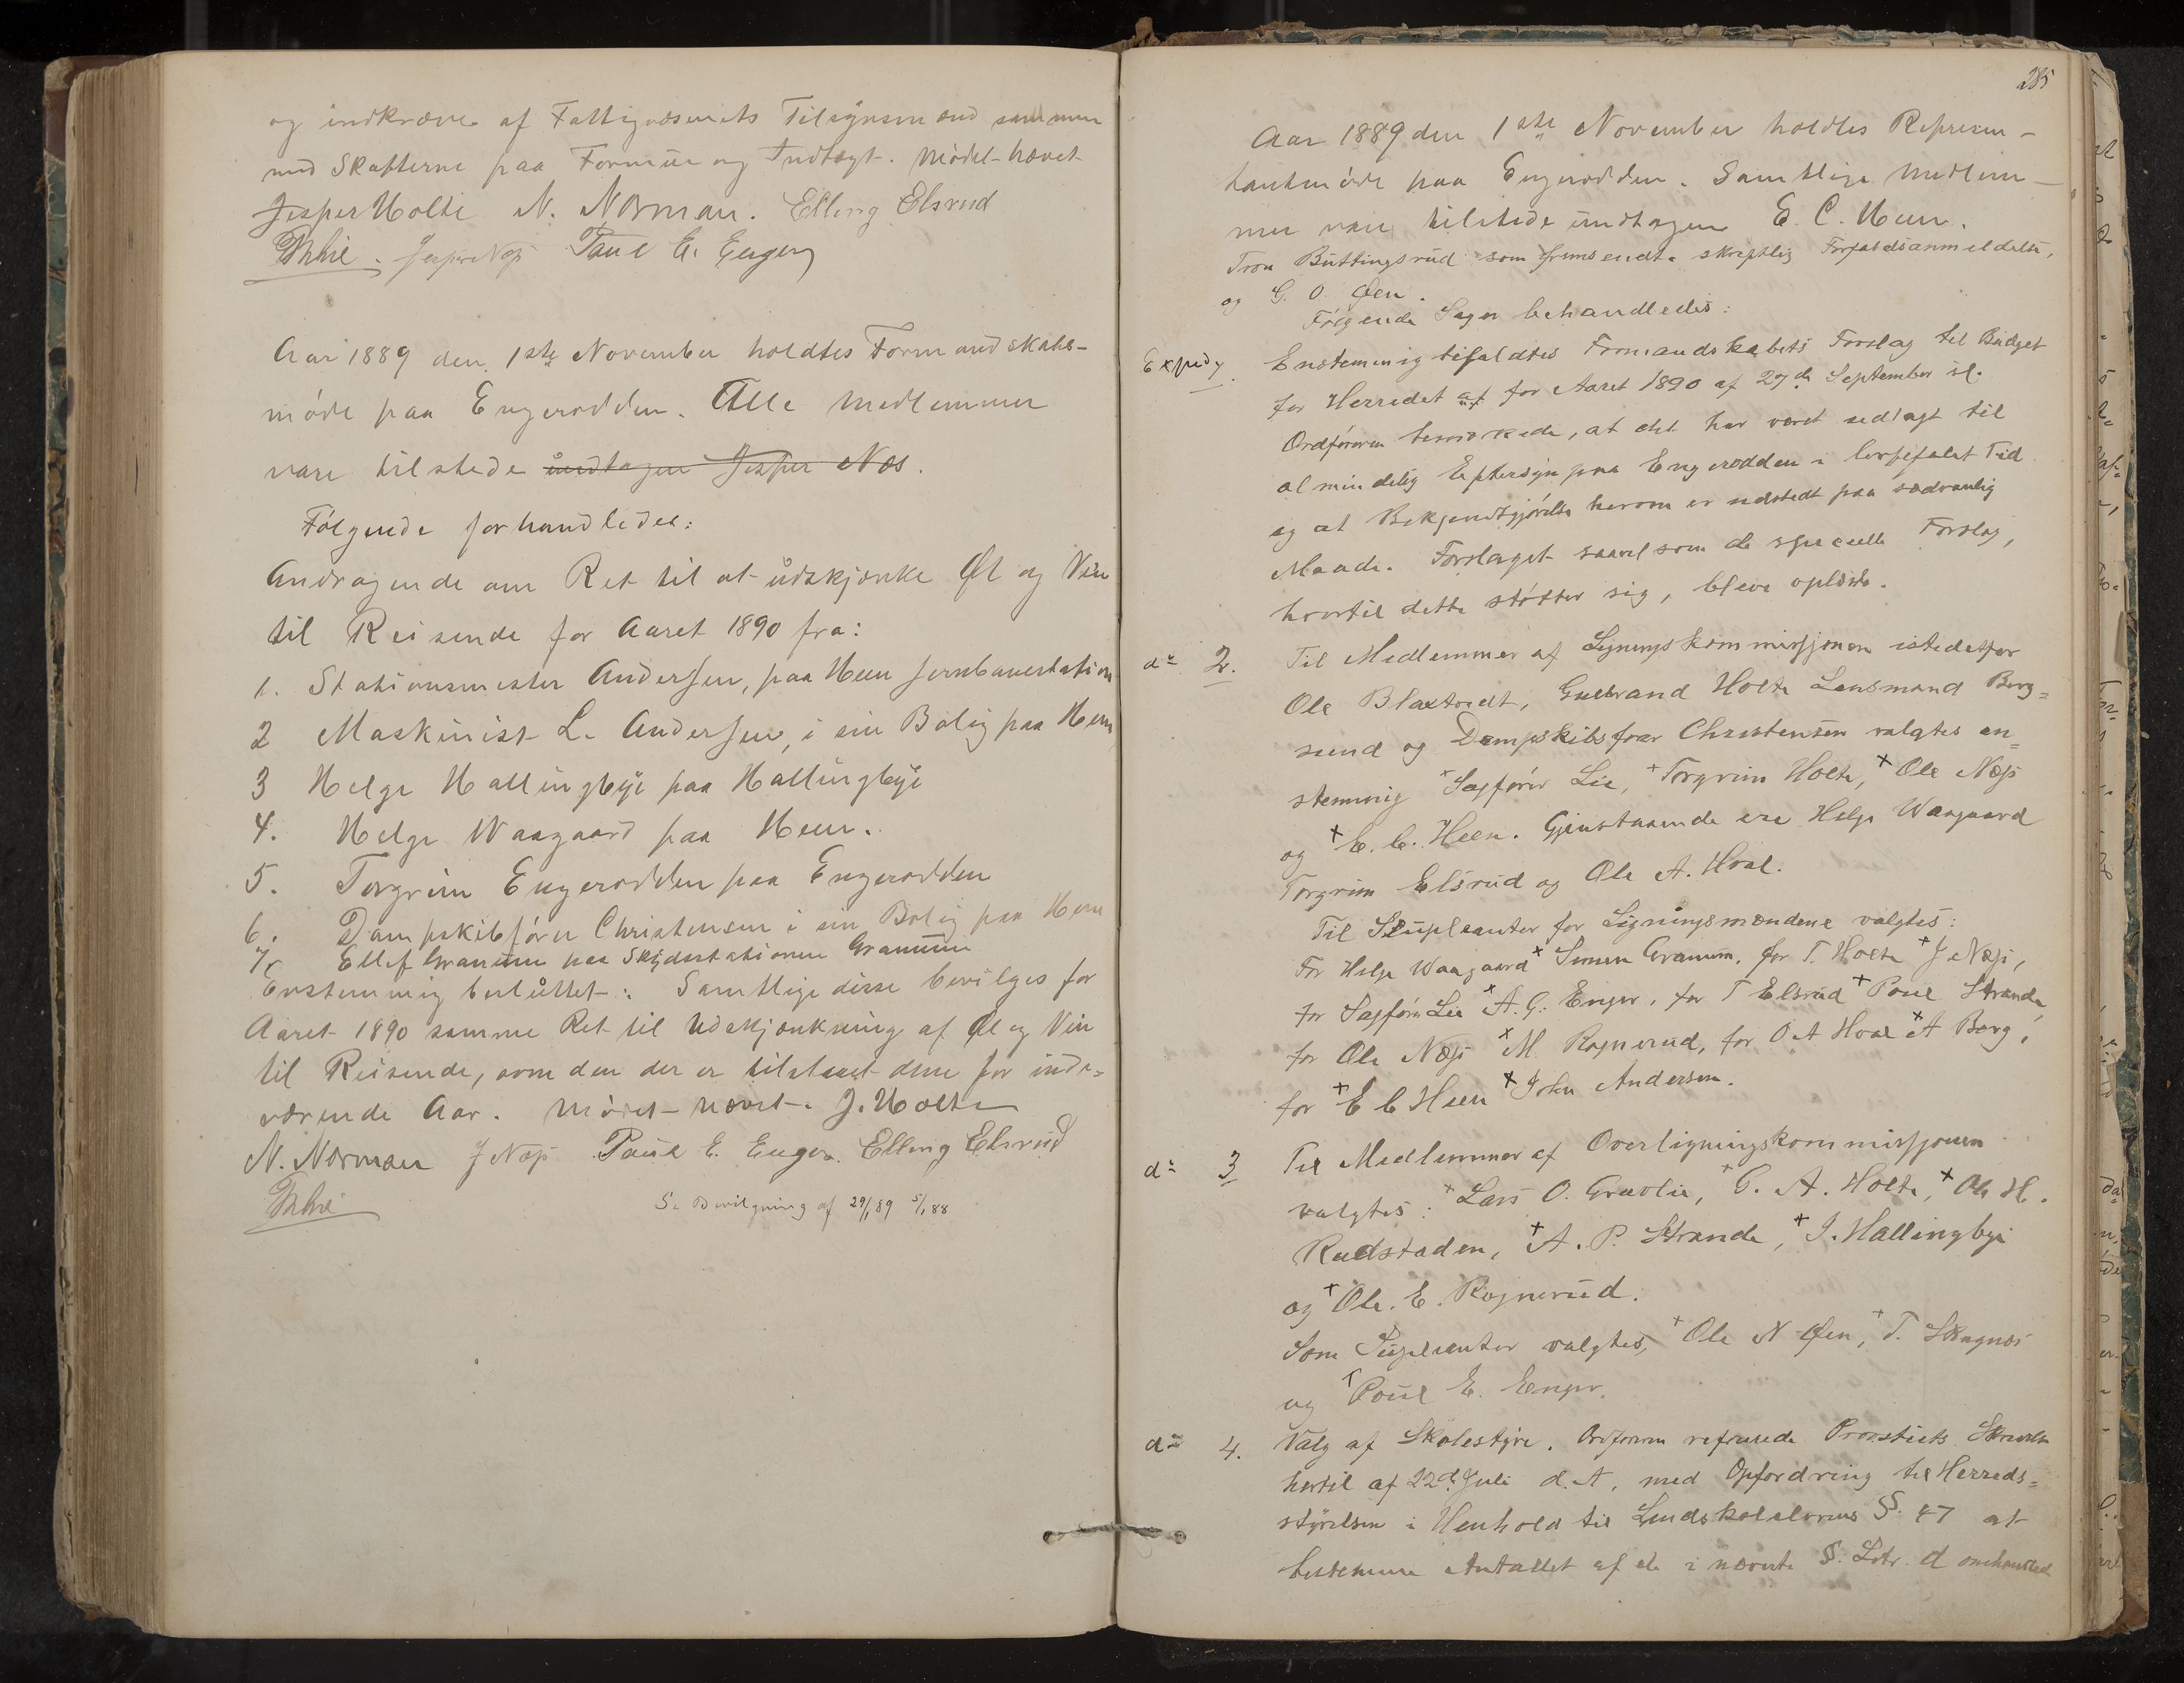 og indkræves af Fattigvæsenets Tilsynsmænd sammen
med Skatterne paa Formue og Indtægt. Mødet hævet
Jesper Holte N. Norman. Elling Elsrud
Jesper Næs Paul E. Enger
Aar 1889 den 1ste November holdtes Formandskabs-
møde paa Engerodden. Alle Medlemmer
vare tilstede undtagen Jesper Næs.
Følgende forhandledes:
Andragende om Ret til at udskjænke Øl og Vin
til Reisende for Aaret 1890 fra:
1. Stationsmester Andersen, paa Heen Jernbanestation
2 Maskinist L. Andersen, i sin Bolig paa Heen
3 Helge Hallingbye paa Hallingbye
4. Helge Waagaard paa Heen.
5. Torgrim Engerodden paa Engerodden
6. Dampskibsfører Christensen i sin Bolig paa Heen
7. Ellef Granum paa Skydsstationen Granum
Enstemmig besluttet: Samtlige disse bevilges for
Aaret 1890 samme Ret til Udskjænkning af Øl og Vin
til Reisende, som den der er tilstaaet dem for inde-
værende Aar. Mødet hævet. J. Holte
N. Norman J Næs Paul E. Enger. Elling Elsrud
Se Bevilgning af 29/1 89 5/1 88
285
Aar 1889 den 1ste November holdtes Represen-
tantmøde paa Engerodden. Samtlige Medlem-
mer vare tilstede undtagen E. C. Heen.
Tron Buttingsrud som fremsendte skriftlig Forfaldsanmeldelse,
og G. O. Øen.
Følgende Sager behandledes:
Exped. Enstemmig bifaldtes Formandskabets Forslag til Budget
for Herredet af for Aaret 1890 af 27de September sl.
Ordføreren bemærkede, at det har været udlagt til
almindelig Eftersyn paa Engerodden i lovbefalet Tid
og at Bekjendtgjørelse herom er udstedt paa sædvanlig
Maade. Forslaget saavel som de specielle Forslag,
hvortil dette støtter sig, bleve oplæste.
do 2. Til Medlemmer af Ligningskommissjonen istedetfor
Ole Blaxtvedt, Gulbrand Holte Lensmand Berg=
sund og Dampskibsfører Christensen valgtes en=
stemmig Sagfører Lie, Torgrim Holte, Ole Næs
og E. C. Heen. Gjenstaaende ere Helge Waagaard
Torgrim Elsrud og Ole A. Hval.
Til Suppleanter for Ligningsmændene valgtes:
For Helge Waagaard Simen Granum, for T. Holte J Næs,
for Sagfører Lie A. G. Enger, for T Elsrud Poul Strande,
for Ole Næs M. Rognerud, for O A Hval A Berg,
for E C Heen John Andersen.
do 3 Til Medlemmer af Overligningskommissjonen
valgtes: Lars O. Gravlie, G. A. Holte, Ole H.
Rudstaden, A. P. Strande, J. Hallingbye
og Ole. E. Rognerud.
Som Supleanter valgtes, Ole N Øen, T. Skagnæs
og Poul E. Enger.
do 4. Valg af Skolestyre. Ordføreren refererede Provstiets Skrivelse
hertil af 22de Juli d. A, med Opfordring til Herreds=
styrelsen i Henhold til Landskolelovens §. 47 at
bestemme Antallet af de i nævnte §. Litr. d omhandlede